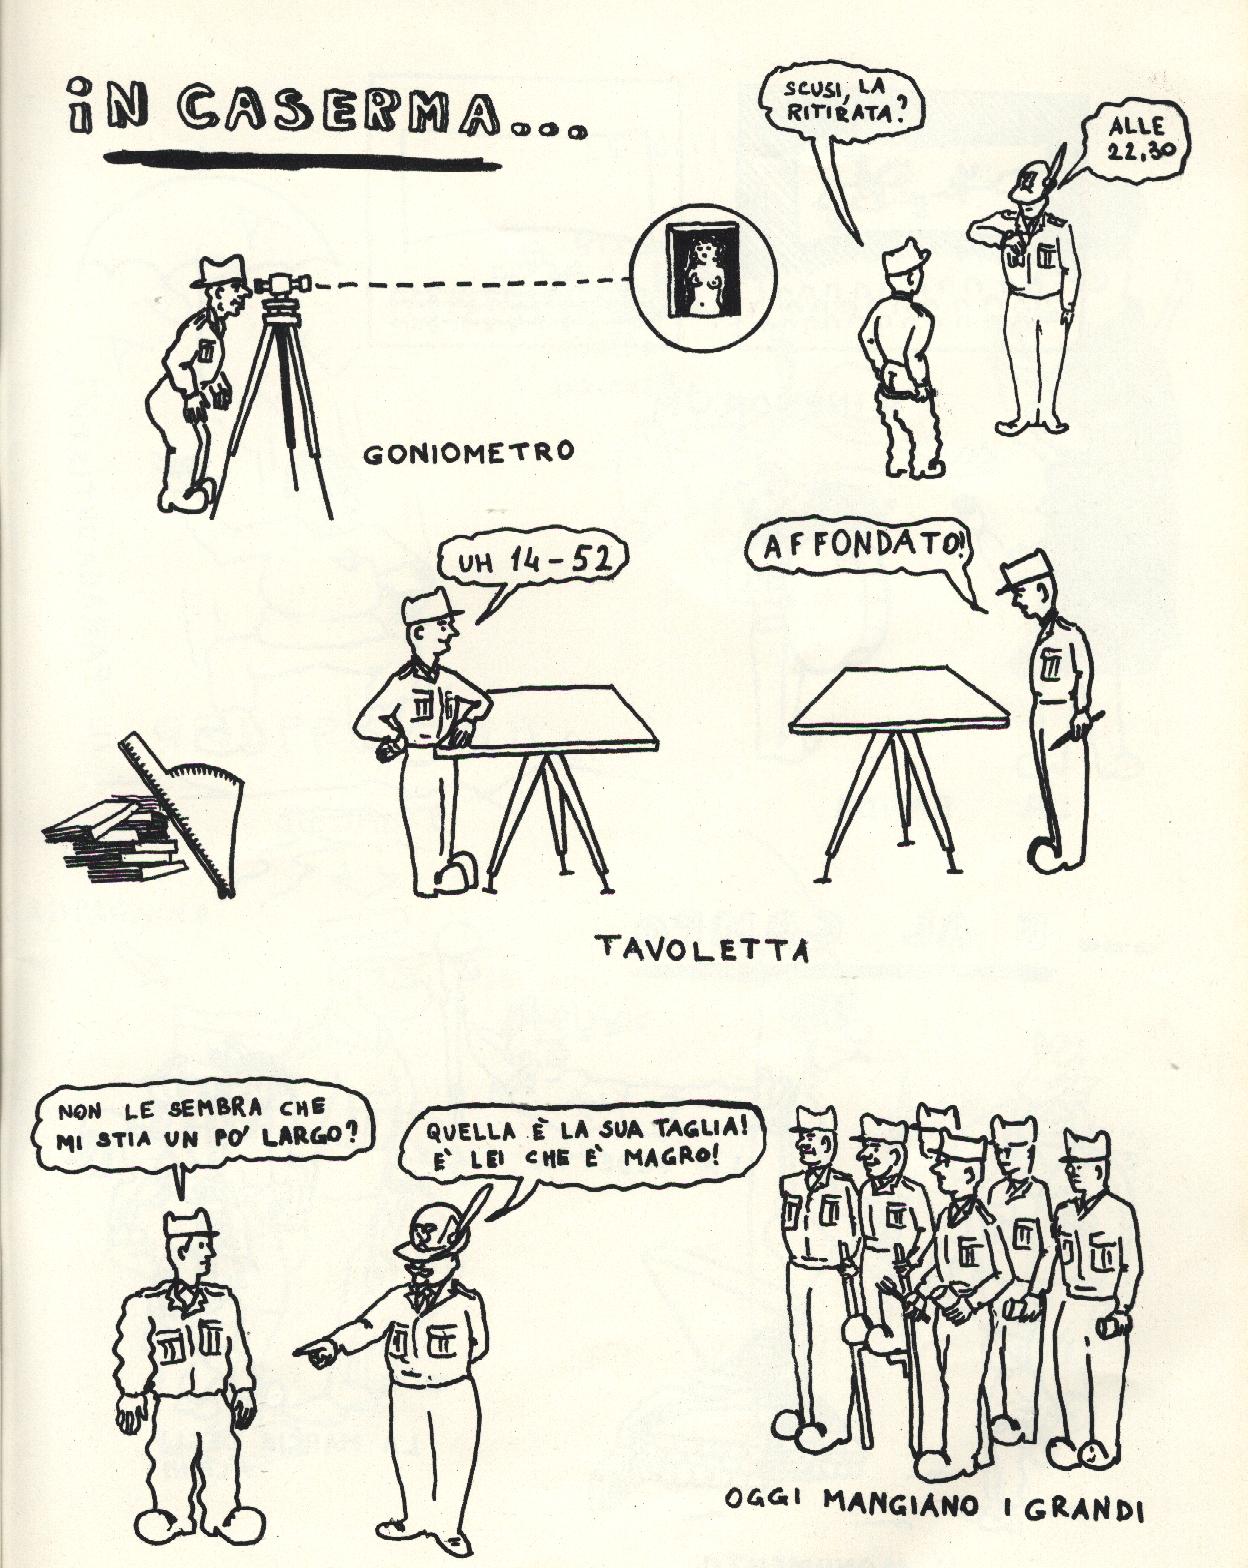 iN CASERMA...
SCUSI, LA
RITIRATA?
ALLE
22,30
GONIOMETRO
UH 14-52
AFFONDATO!
TAVOLETTA
NON LE SEMBRA CHE
MI STIA UN PO' LARGO?
QUELLA È LA SUA TAGLIA!
È LEI CHE È MAGRO!
OGGI MANGIANO I GRANDI